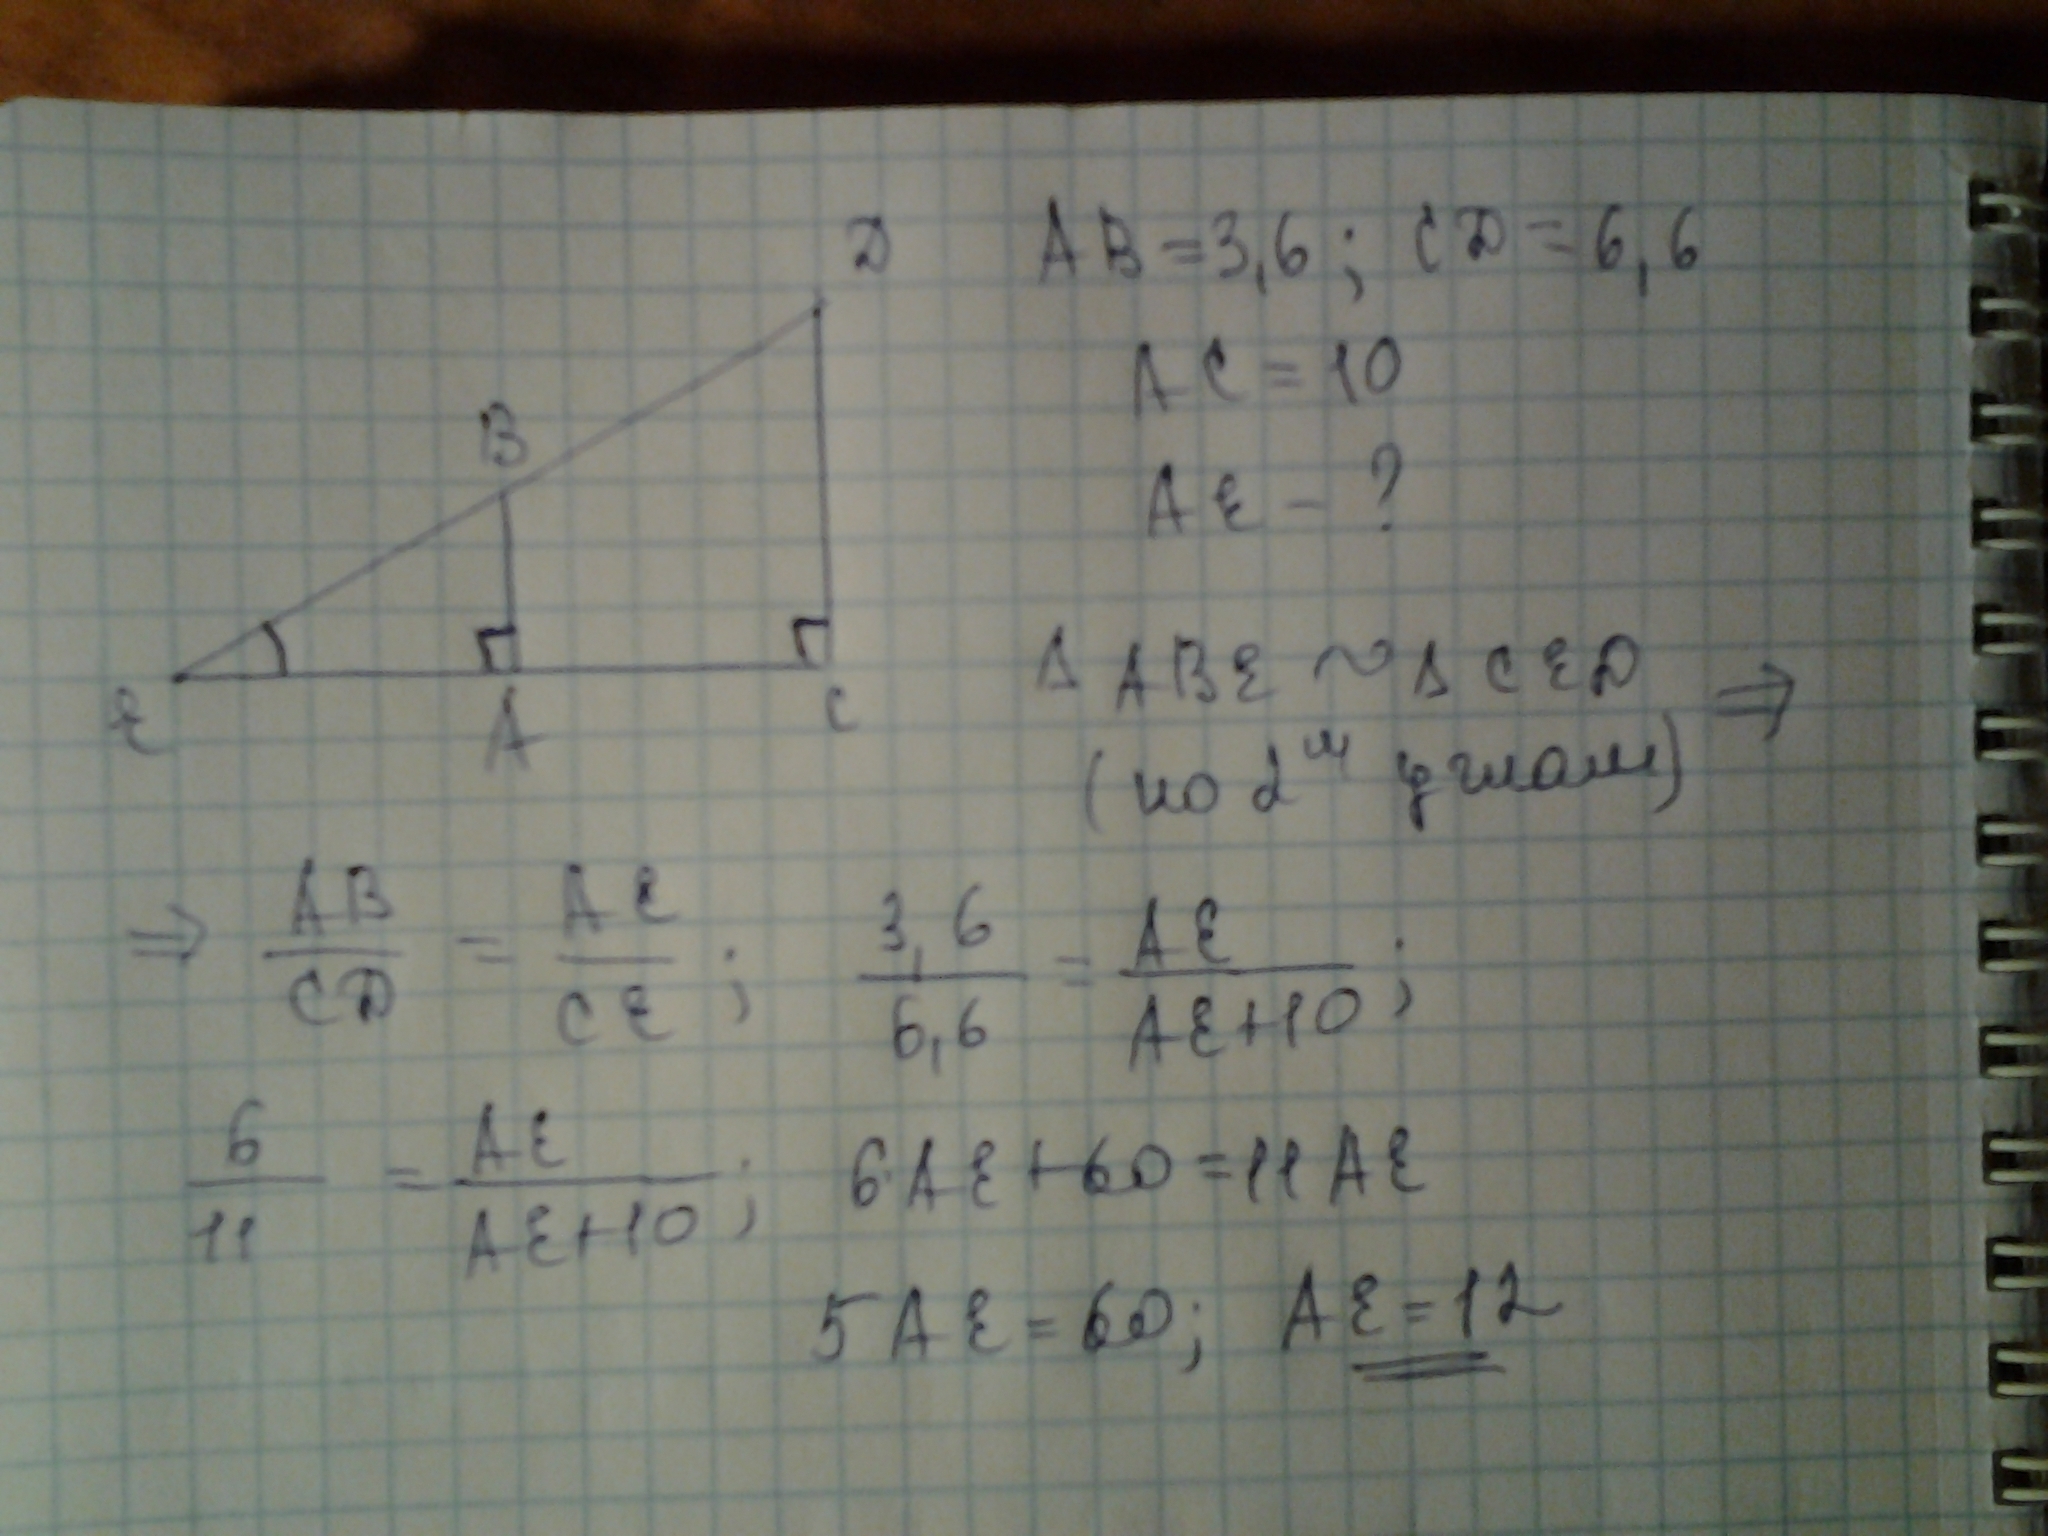 D
B
E
A
C
AB = 3,6 ; CD = 6,6
AC = 10
AE - ?
Δ ABE ~ Δ CED
(по 2ᵘᵐ углам) ⇒
⇒ AB/CD = AE/CE ; 3,6/6,6 = AE/AE+10 ;
6/11 = AE/AE+10 ; 6AE+60=11AE
5AE=60; AE=12